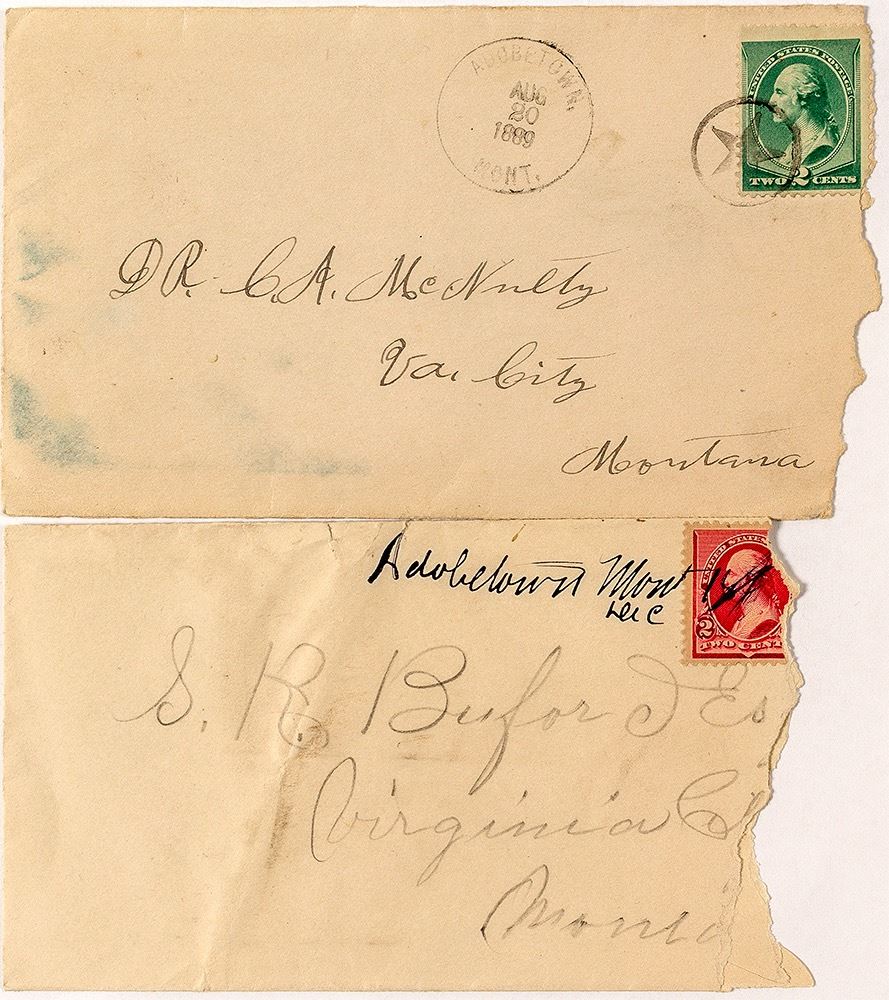 ADOBETOWN,
AUG
20
1889
MONT.
UNITED STATES POSTAGE
TWO 2 CENTS
DR. C. A. McNulty
Va. City
Montana
Adobetown Mont
Dec
UNITED STATES
2
TWO CENT
S. R. Buford Es
Virginia Ci
Monta